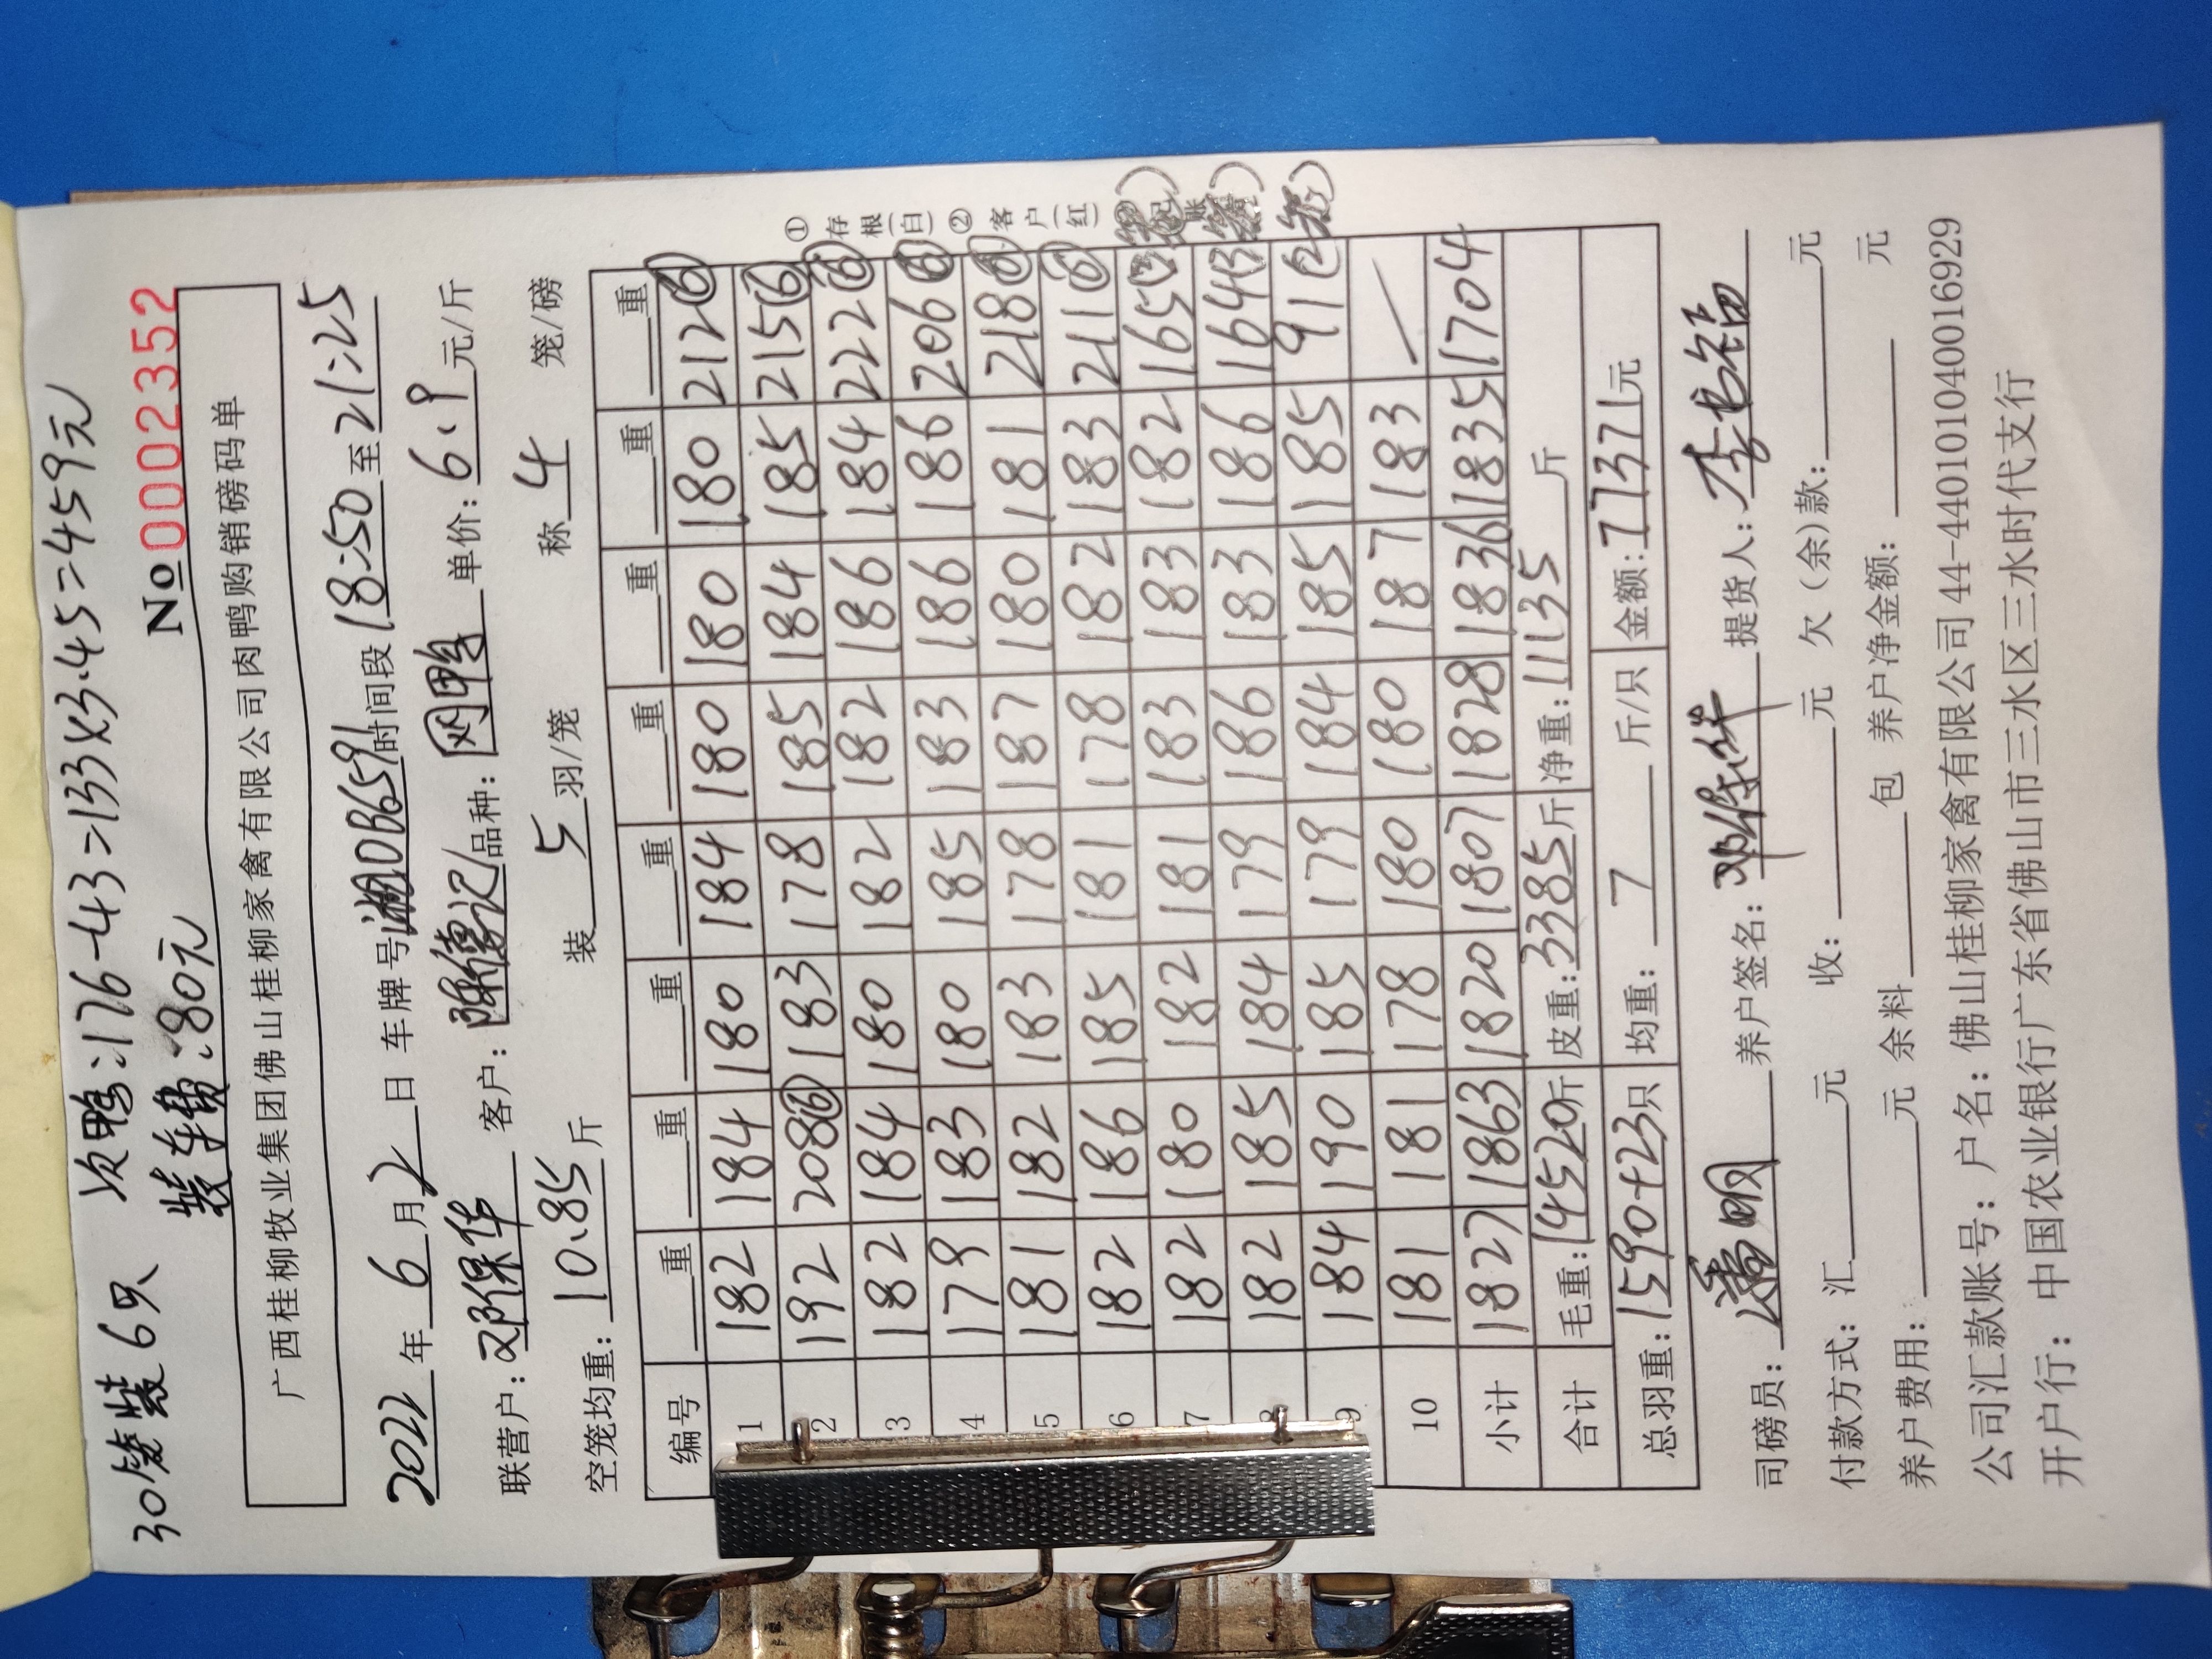 30笼装6只 次鸭:176-43=133×3.45=459元
装车费:80元 No 0002352
广西桂柳牧业集团佛山桂柳家禽有限公司肉鸭购销磅码单
2022年6月2日 车牌号湘0B6591时间段18:50至21:25
联营户:邓保华 客户:陈德记 品种:网鸭 单价:6.9元/斤
空笼均重:10.85斤 装5羽/笼 称4笼/磅
编号 重 重 重 重 重 重 重 重
1 182 184 180 184 180 180 180 212⑥
2 192 208⑥ 183 178 185 184 185 215⑥
3 182 184 180 182 182 186 184 222⑥
4 179 183 180 185 183 186 186 206⑥
5 181 182 183 178 187 180 181 218⑥
6 182 186 185 181 178 182 183 211⑥
7 182 180 182 181 183 183 182 165
8 182 185 184 179 186 183 186 164
9 184 190 185 179 184 185 185 91②
10 181 181 178 180 180 187 183 /
小计 1827 1863 1820 1807 1828 1836 1835 1704
合计 毛重:14520斤 皮重:3385斤 净重:11135斤
总羽重:1590+23只 均重:7斤/只 金额:77371元
①存根(白)②客户(红)
司磅员:潘明 养户签名:邓保华 提货人:李书福
付款方式:汇 元 收: 元 欠(余)款: 元
养户费用: 元 余料 包 养户净金额: 元
公司汇款账号:户名:佛山桂柳家禽有限公司44-440101040016929
开户行:中国农业银行广东省佛山市三水区三水时代支行